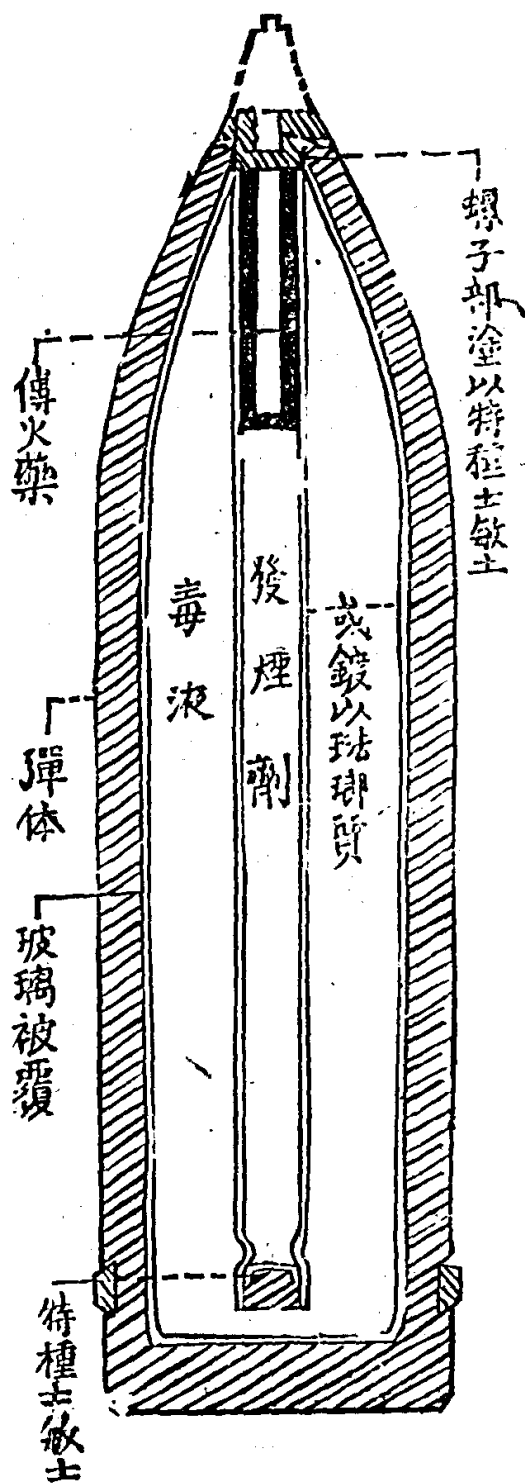 螺子部塗以特種士敏土
傳火藥
發煙劑
毒液
或鍍以琺瑯質
彈体
玻璃被覆
特種士敏士